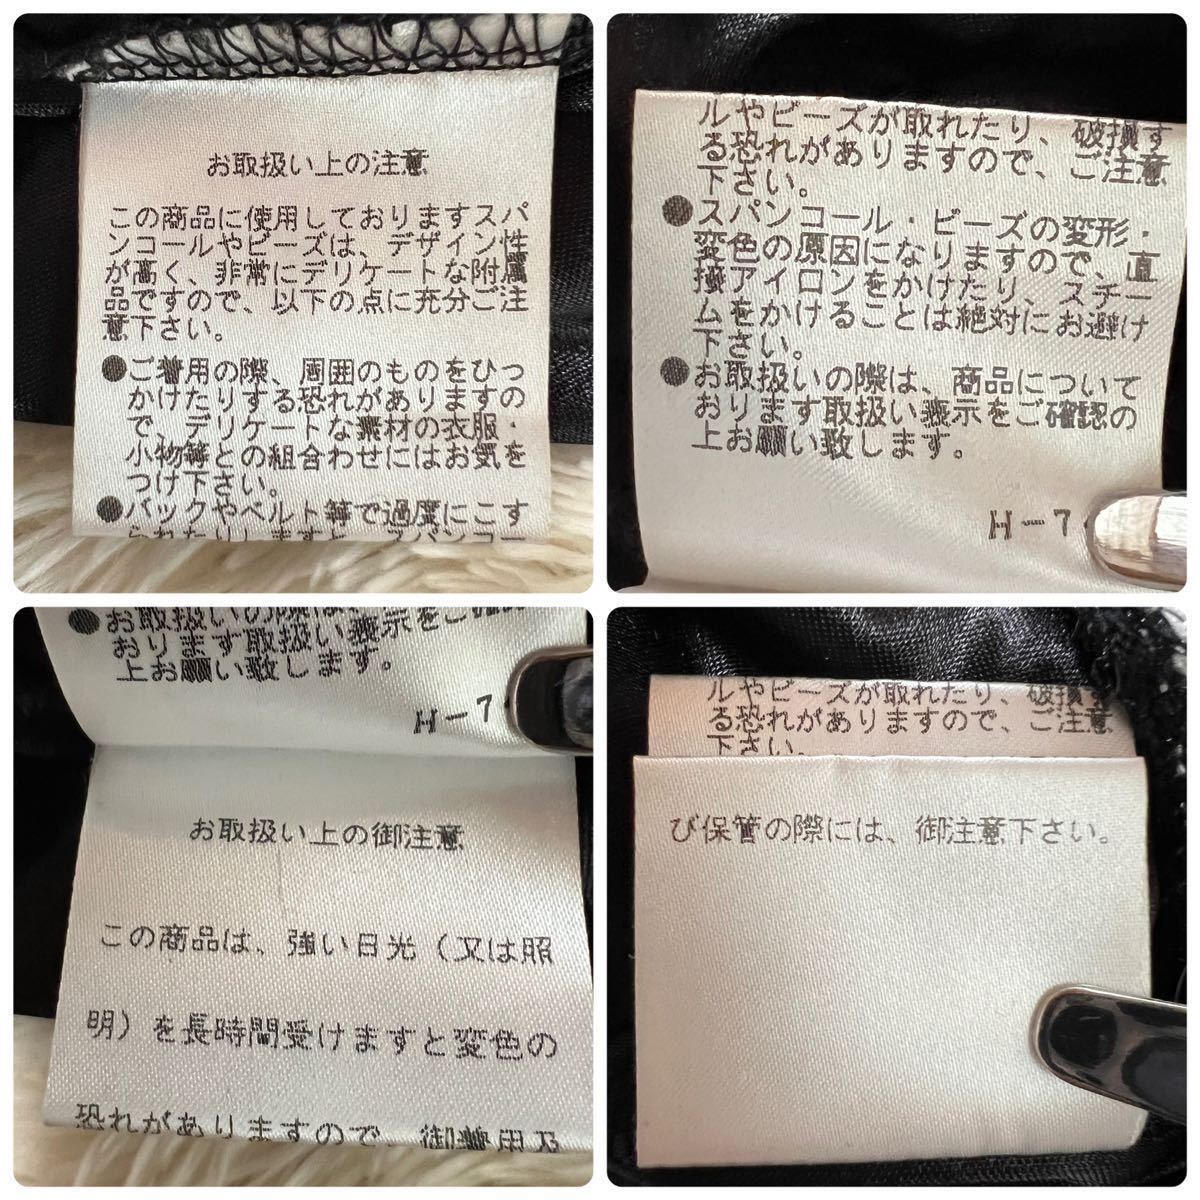 お取扱い上の注意
この商品に使用しておりますスパ
ンコールやビーズは、デザイン性
が高く、非常にデリケートな附属
品ですので、以下の点に充分ご注
意下さい。
●ご着用の際、周囲のものをひっ
かけたりする恐れがありますの
で、デリケートな素材の衣服・
小物等との組合わせにはお気を
つけ下さい。
●バックやベルト等で過度にこす
られたりしますと、スパンコー
ルやビーズが取れたり、破損す
る恐れがありますので、ご注意
下さい。
●スパンコール・ビーズの変形・
変色の原因になりますので、直
接アイロンをかけたり、スチー
ムをかけることは絶対にお避け
下さい。
●お取扱いの際は、商品について
おります取扱い表示をご確認の
上お願い致します。
H-7
●お取扱いの際は、
おります取扱い表示をご確認の
上お願い致します。
H-7
お取扱い上の御注意
この商品は、強い日光(又は照
明)を長時間受けますと変色の
恐れがありますので、御着用及
ルやビーズが取れたり、破損す
る恐れがありますので、ご注意
下さい。
び保管の際には、御注意下さい。